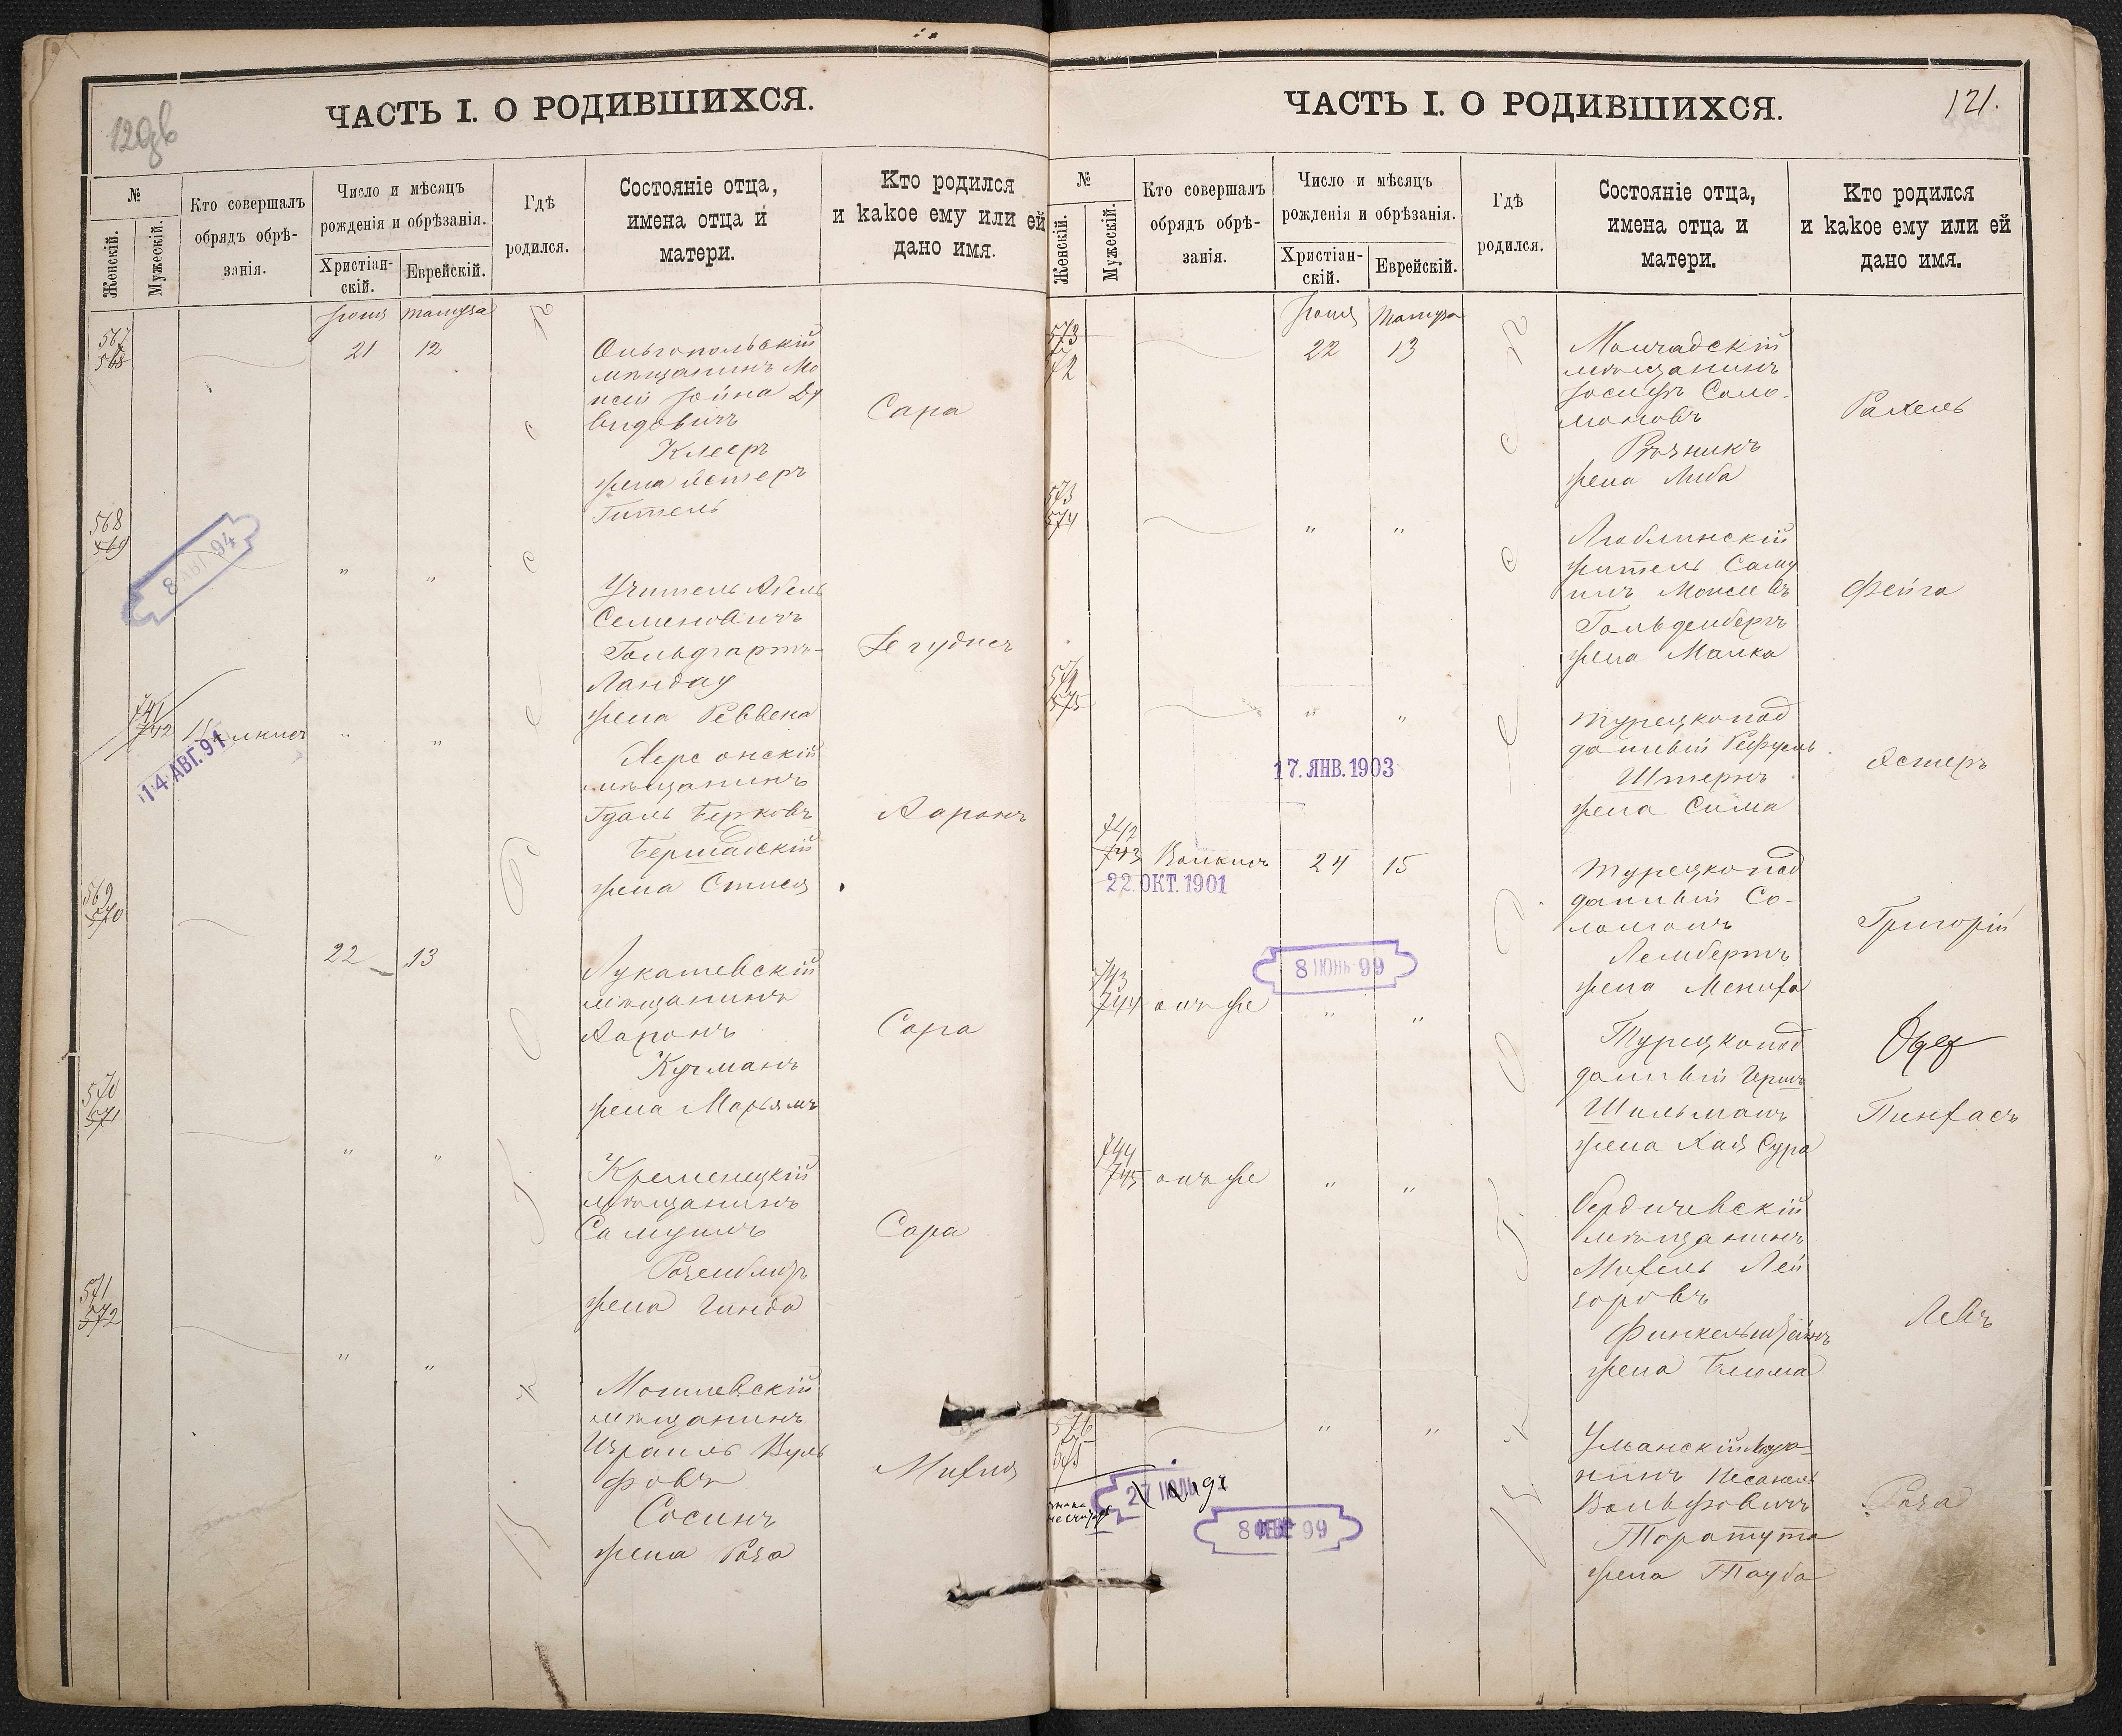 ЧАСТЬ I. О РОДИВШИХСЯ.
№
Женскій.
Мужескій.
Кто совершалъ
обрядъ обрѣ-
занія.
Число и мѣсяцъ
рожденія и обрѣзанія.
Христіан-
скій.
Еврейскій.
Гдѣ
родился.
Состояніе отца,
имена отца и
матери.
Кто родился
и какое ему или ей
дано имя.
Іюня Тамуза
567
568
21 12
Ольгопольскій
мѣщанинъ Мо
исей Іойна Да
видовичъ
Клеръ
жена Эстеръ
Гитель
Сара
568
569
8 94
" "
Учитель Абель
Семеновичъ
Гольдгартъ-
Ландау
жена Реввека
741
742
14 АВГ. 91
" "
Херсонскій
мѣщанинъ
Гдаль Берковъ
Бершадскій
жена
Ааронъ
569
570
22 13
Лукашевскій
мѣщанинъ
Ааронъ
Кугманъ
жена Марьямъ
Сара
570
571
" "
Кременецкій
мѣщанинъ
Самуилъ
Розенблитъ
жена Гинда
Сара
571
572
" "
Могилевскій
мѣщанинъ
Израиль Вуль
фовъ
Сосинъ
жена Роза
Михля
ЧАСТЬ I. О РОДИВШИХСЯ.
121.
№
Женскій.
Мужескій.
Кто совершалъ
обрядъ обрѣ-
занія.
Число и мѣсяцъ
рожденія и обрѣзанія.
Христіан-
скій.
Еврейскій.
Гдѣ
родился.
Состояніе отца,
имена отца и
матери.
Кто родился
и какое ему или ей
дано имя.
Іюня Тамуза
573
572
22 13
Молчадскій
мѣщанинъ
Іосифъ Соло-
моновъ
Рѣзникъ
жена Либа
Рахель
573
574
" "
Люблинскій
житель Саму
илъ Моисеевъ
Гольденбергъ
жена Малка
Фейга
574
575
" "
17. ЯНВ. 1903
Турецкопод
данный Рефуель
Штернъ
жена Сима
Эстеръ
742
743
Волкисъ
24 15
22. ОКТ. 1901
Турецкопод
данный Со-
ломонъ
Лембергъ
жена Мениха
Григорій
8 ІЮН 99
743
744
онъ же
" "
Турецкопод
данный Гершъ
Шильманъ
жена Хая Сура
Пинхасъ
744
745
онъ же
" "
Бердичевскій
мѣщанинъ
Михель Лей
зоровъ
Финкельштейнъ
жена Блюма
Левъ
576
575
" "
27 ІЮЛ
8 ФЕВР 99
Уманскій мѣща-
нинъ
Вольфовичъ
Таратута
жена Тауба
Роза